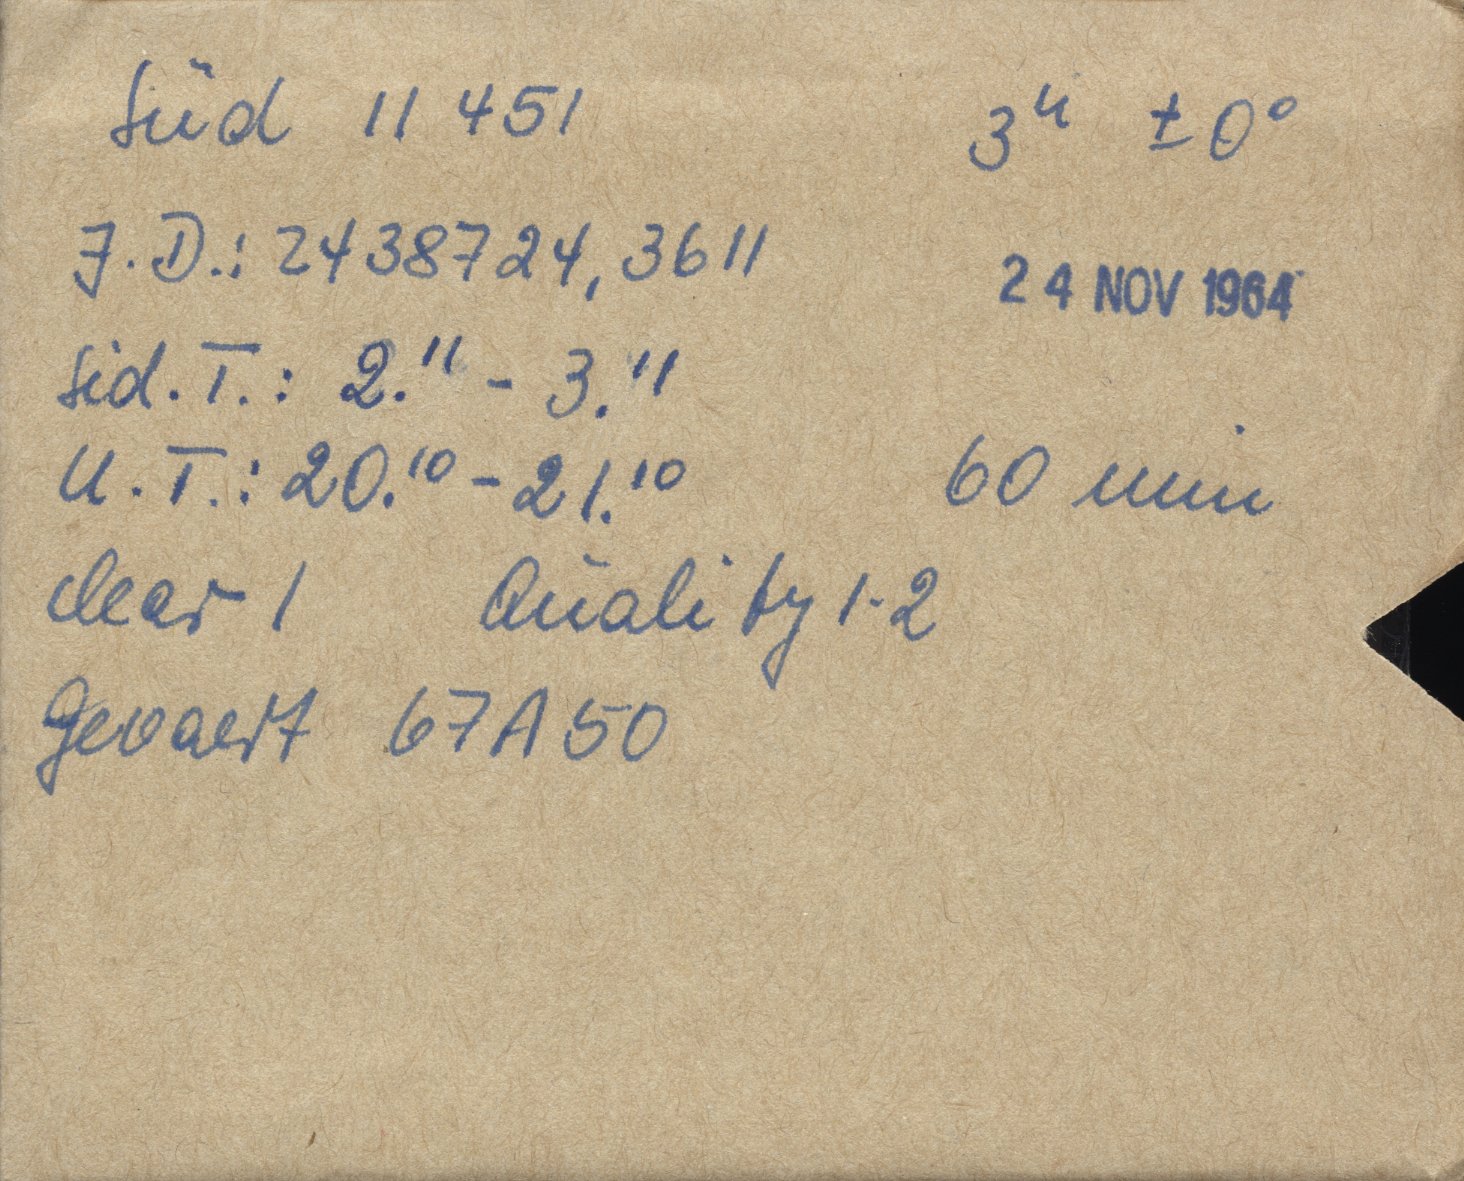 Süd 11 451 3ʰ ±0°
J.D.: 2438724,3611
24 NOV 1964
Sid.T.: 2.¹¹ - 3.¹¹
U.T.: 20.¹⁰ - 21.¹⁰ 60 min
clear 1 Quality 1-2
Gevaert 67A50